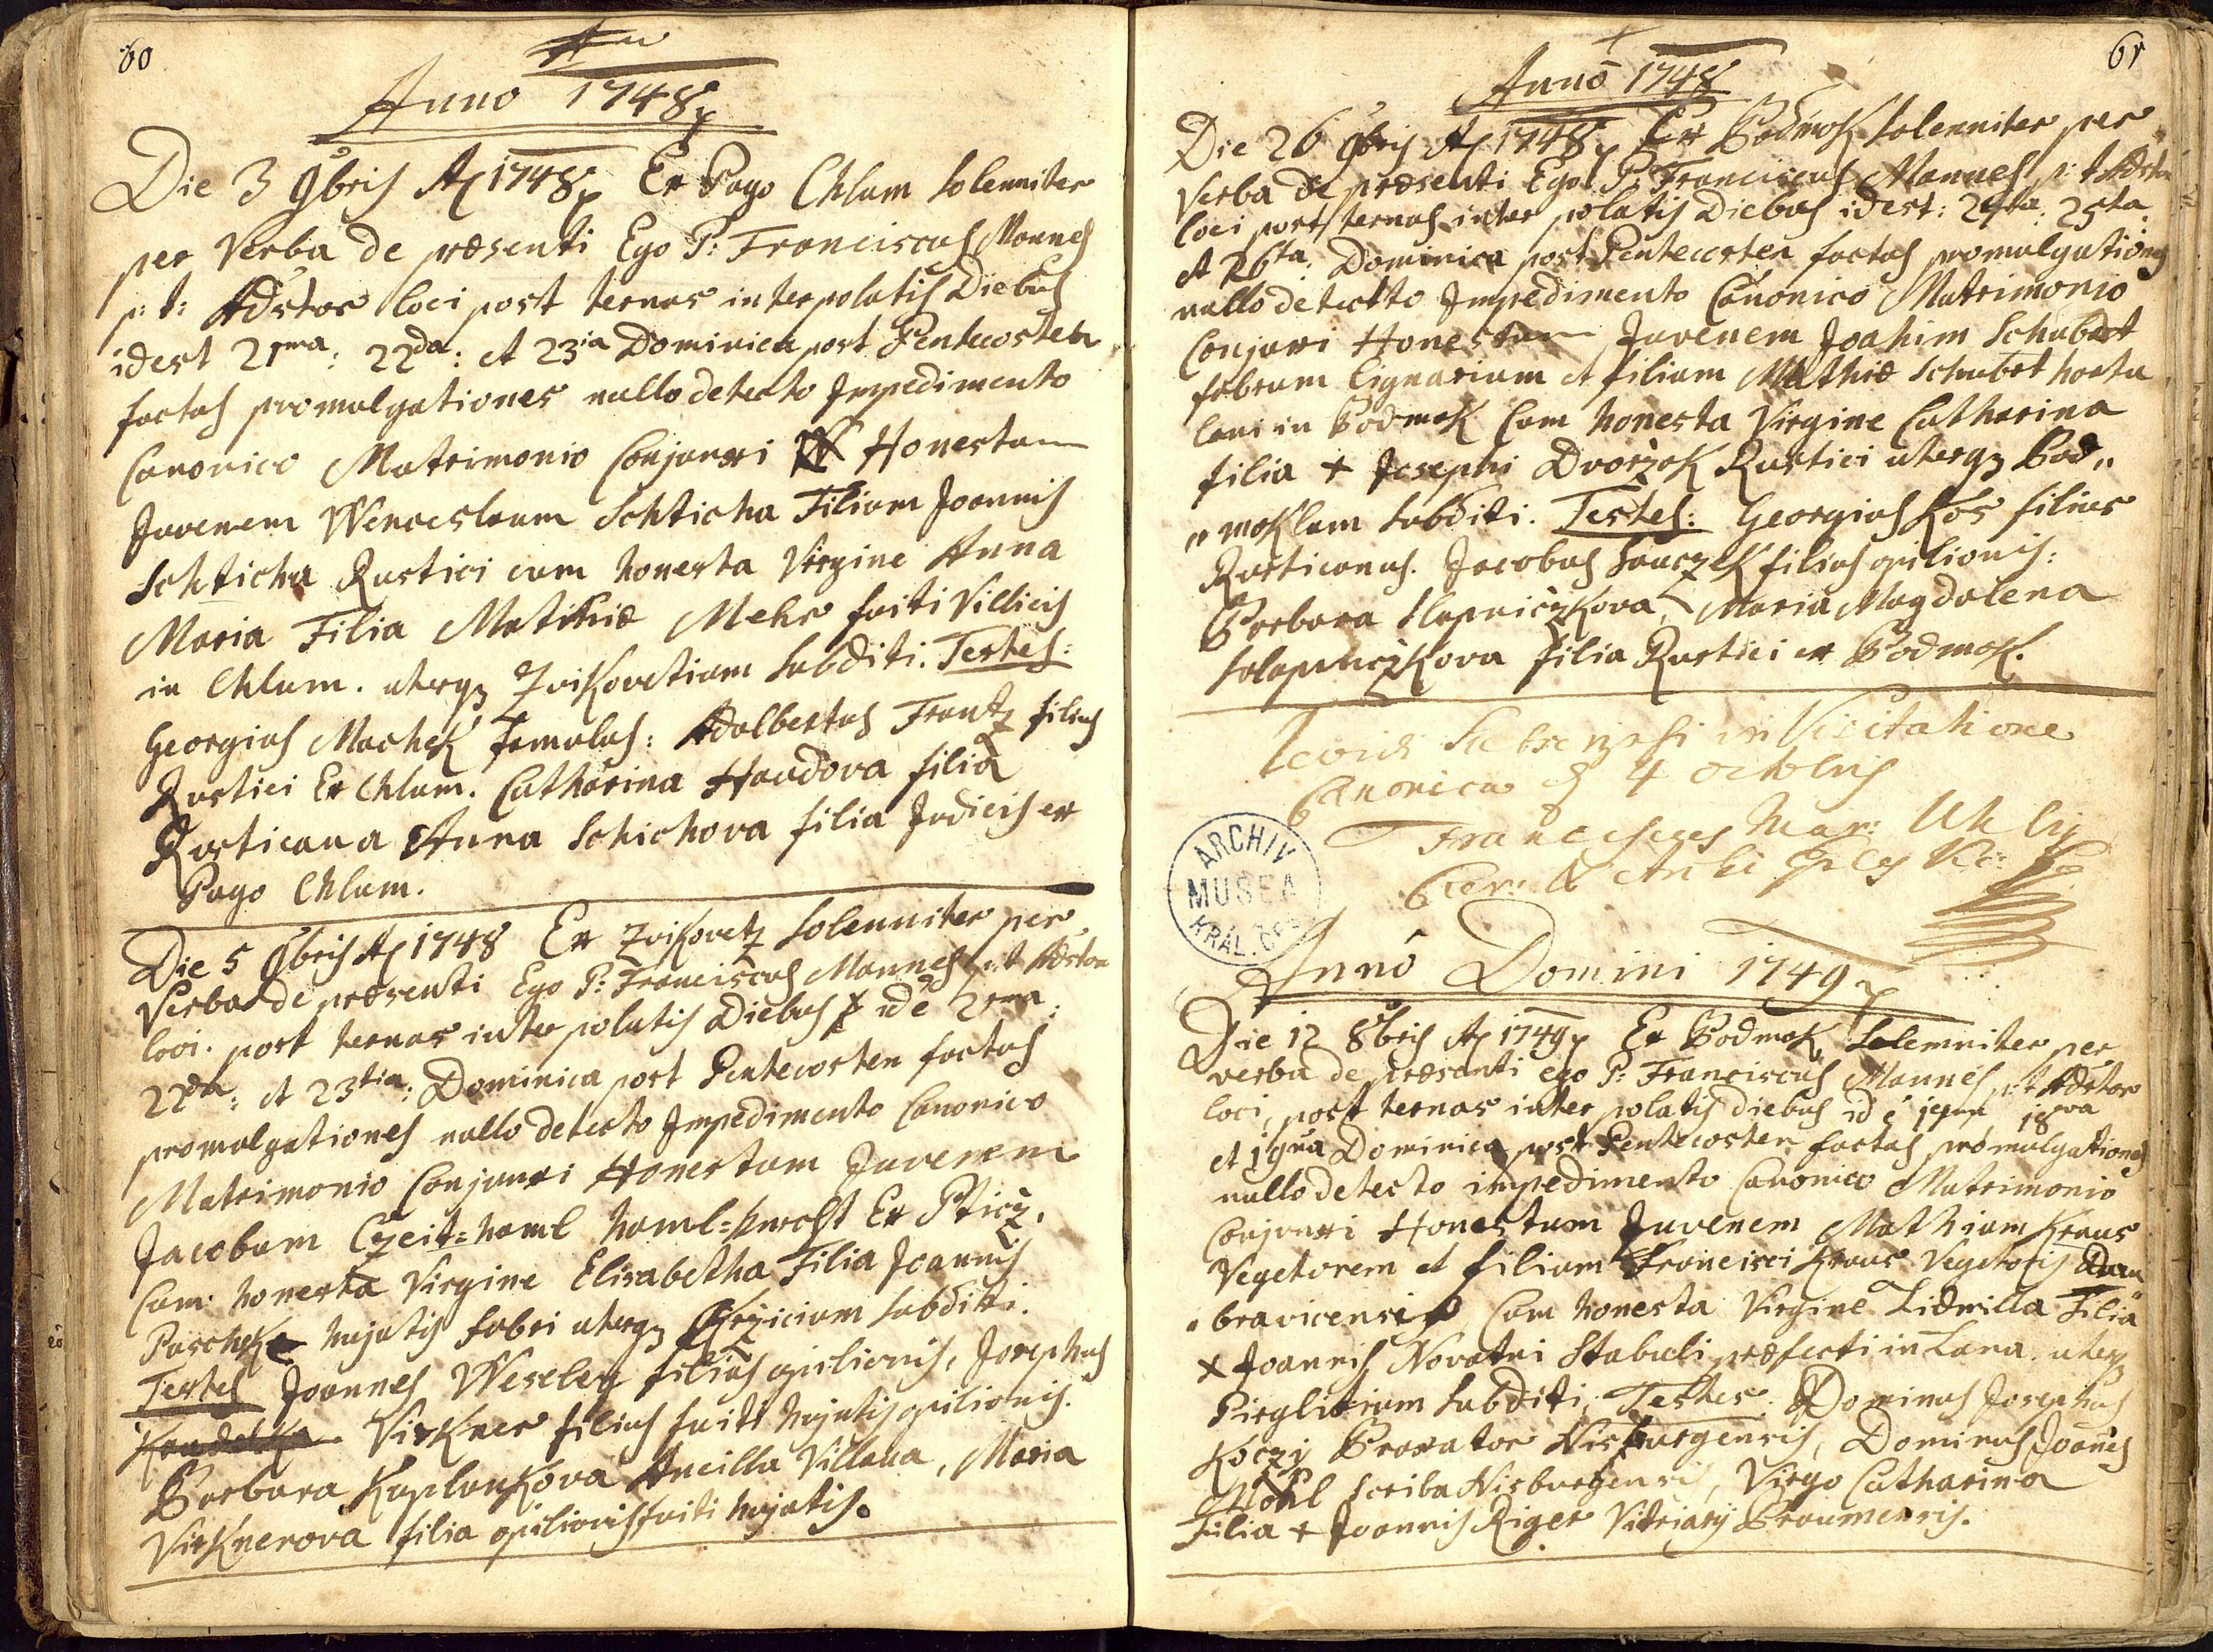 60
Anno 1748
Die 3 9bris A 1748 Ex Pago Chlum Solenniter
per Verba de præsenti Ego P: Franciscus Mannes
p: t: Adstor loci post ternas interpolatis Diebus
idest 21ma: 22da: et 23ia Dominica post Pentecosten
factas promulgationes nullo detecto Impedimento
Canonico Matrimonio Conjunxi Honestum
Juvenem Wenceslaum Schticha Filium Joannis
Schticha Rustici cum honesta Virgine Anna
Maria Filia Mathiæ Mehr fuiti Villicis
in Chlum. uterq3 Zvikovetium subditi. Testes:
Georgius Machek famulus: Adalbertus Frantz filius
Rustici Ex Chlum. Catharina Haudova filia
Rusticana Anna Schichova filia Judicis ex
Pago Chlum.
Die 5 9bris A 1748 Ex Zvikovetz Solenniter per
Verba de præsenti Ego P: Franciscus Mannes p: t Adstor
loci. post ternas interpolatis Diebus id ē 21ma:
22da: et 23tia: Dominica post Pentecosten factas
promulgationes nullo detecto Impedimento Canonico
Matrimonio Conjunxi Honestum Juvenem
Jacobum Czeit=haml haml=knecht Ex Pticz.
Cum honesta Virgine Elisabetha Filia Joannis
Paschek hujatis fabri uterq3 subditi.
Testes Joannes Weseley filius opilionis, Josephus
Virkner filius fuiti hujatis opilionis.
Barbara Kaplankova Ancilla Villana, Maria
Virknerova filia opilionis fuiti hujatis.
61
Anno 1748
Die 26 9bris A 1748 Ex Podmok Solenniter per
Verba de præsenti Ego P: Franciscus Mannes p: t Adstor
loci post ternas interpolatis Diebus idest: 24ta: 25ta:
et 26ta: Dominica post Pentecosten factas promulgationes
nullo detectto Impedimento Canonico Matrimonio
Conjunxi Honestum Juvenem Joahim Schubert
fabrum lignarium et filium Mathiæ Schubert hortu
lani in Podmok Cum honesta Virgine Catharina
filia + Josephi Dvorzak Rustici uterq3 Pod„
„moklum subditi. Testes: Georgius Kos filius
Rusticanus. Jacobus Sauczek filius opilionis:
Barbara Slapniczkova, Maria Magdalena
Solapniczkova filia Rustici ex Podmok.
in Visitatione
Canonica d 4 octobris
Franciscus Mar: Uhlig
ARCHIV
MUSEA
KRÁL. ČES
Annô Domini 1749
Die 12 8bris A 1749 Ex Podmok Solemniter per
verba de præsenti ego P: Franciscus Mannes p: t Adstor
loci, post ternas interpolatis diebus id ē 18va
et 19na Dominica post Pentecosten factas promulgationes
nullo detecto impedimento Canonico Matrimonio
Conjunxi Honestum Juvenem Mathiam Kraus
Vegetorem et filium Francisci Kraus Vegetoris Dum
„bravicensis Cum honesta Virgine Lidmilla Filia
+ Joannis Novotni Stabuli præfecti in Lana. uterq3
Pirglitium subditi, Testes: Dominus Josephus
Koczy Braxator Nisburgensis, Dominus Joanes
scriba Nisburgensis, Virgo Catharina
Filia + Joannis Riger Vitriarij Braumensis.